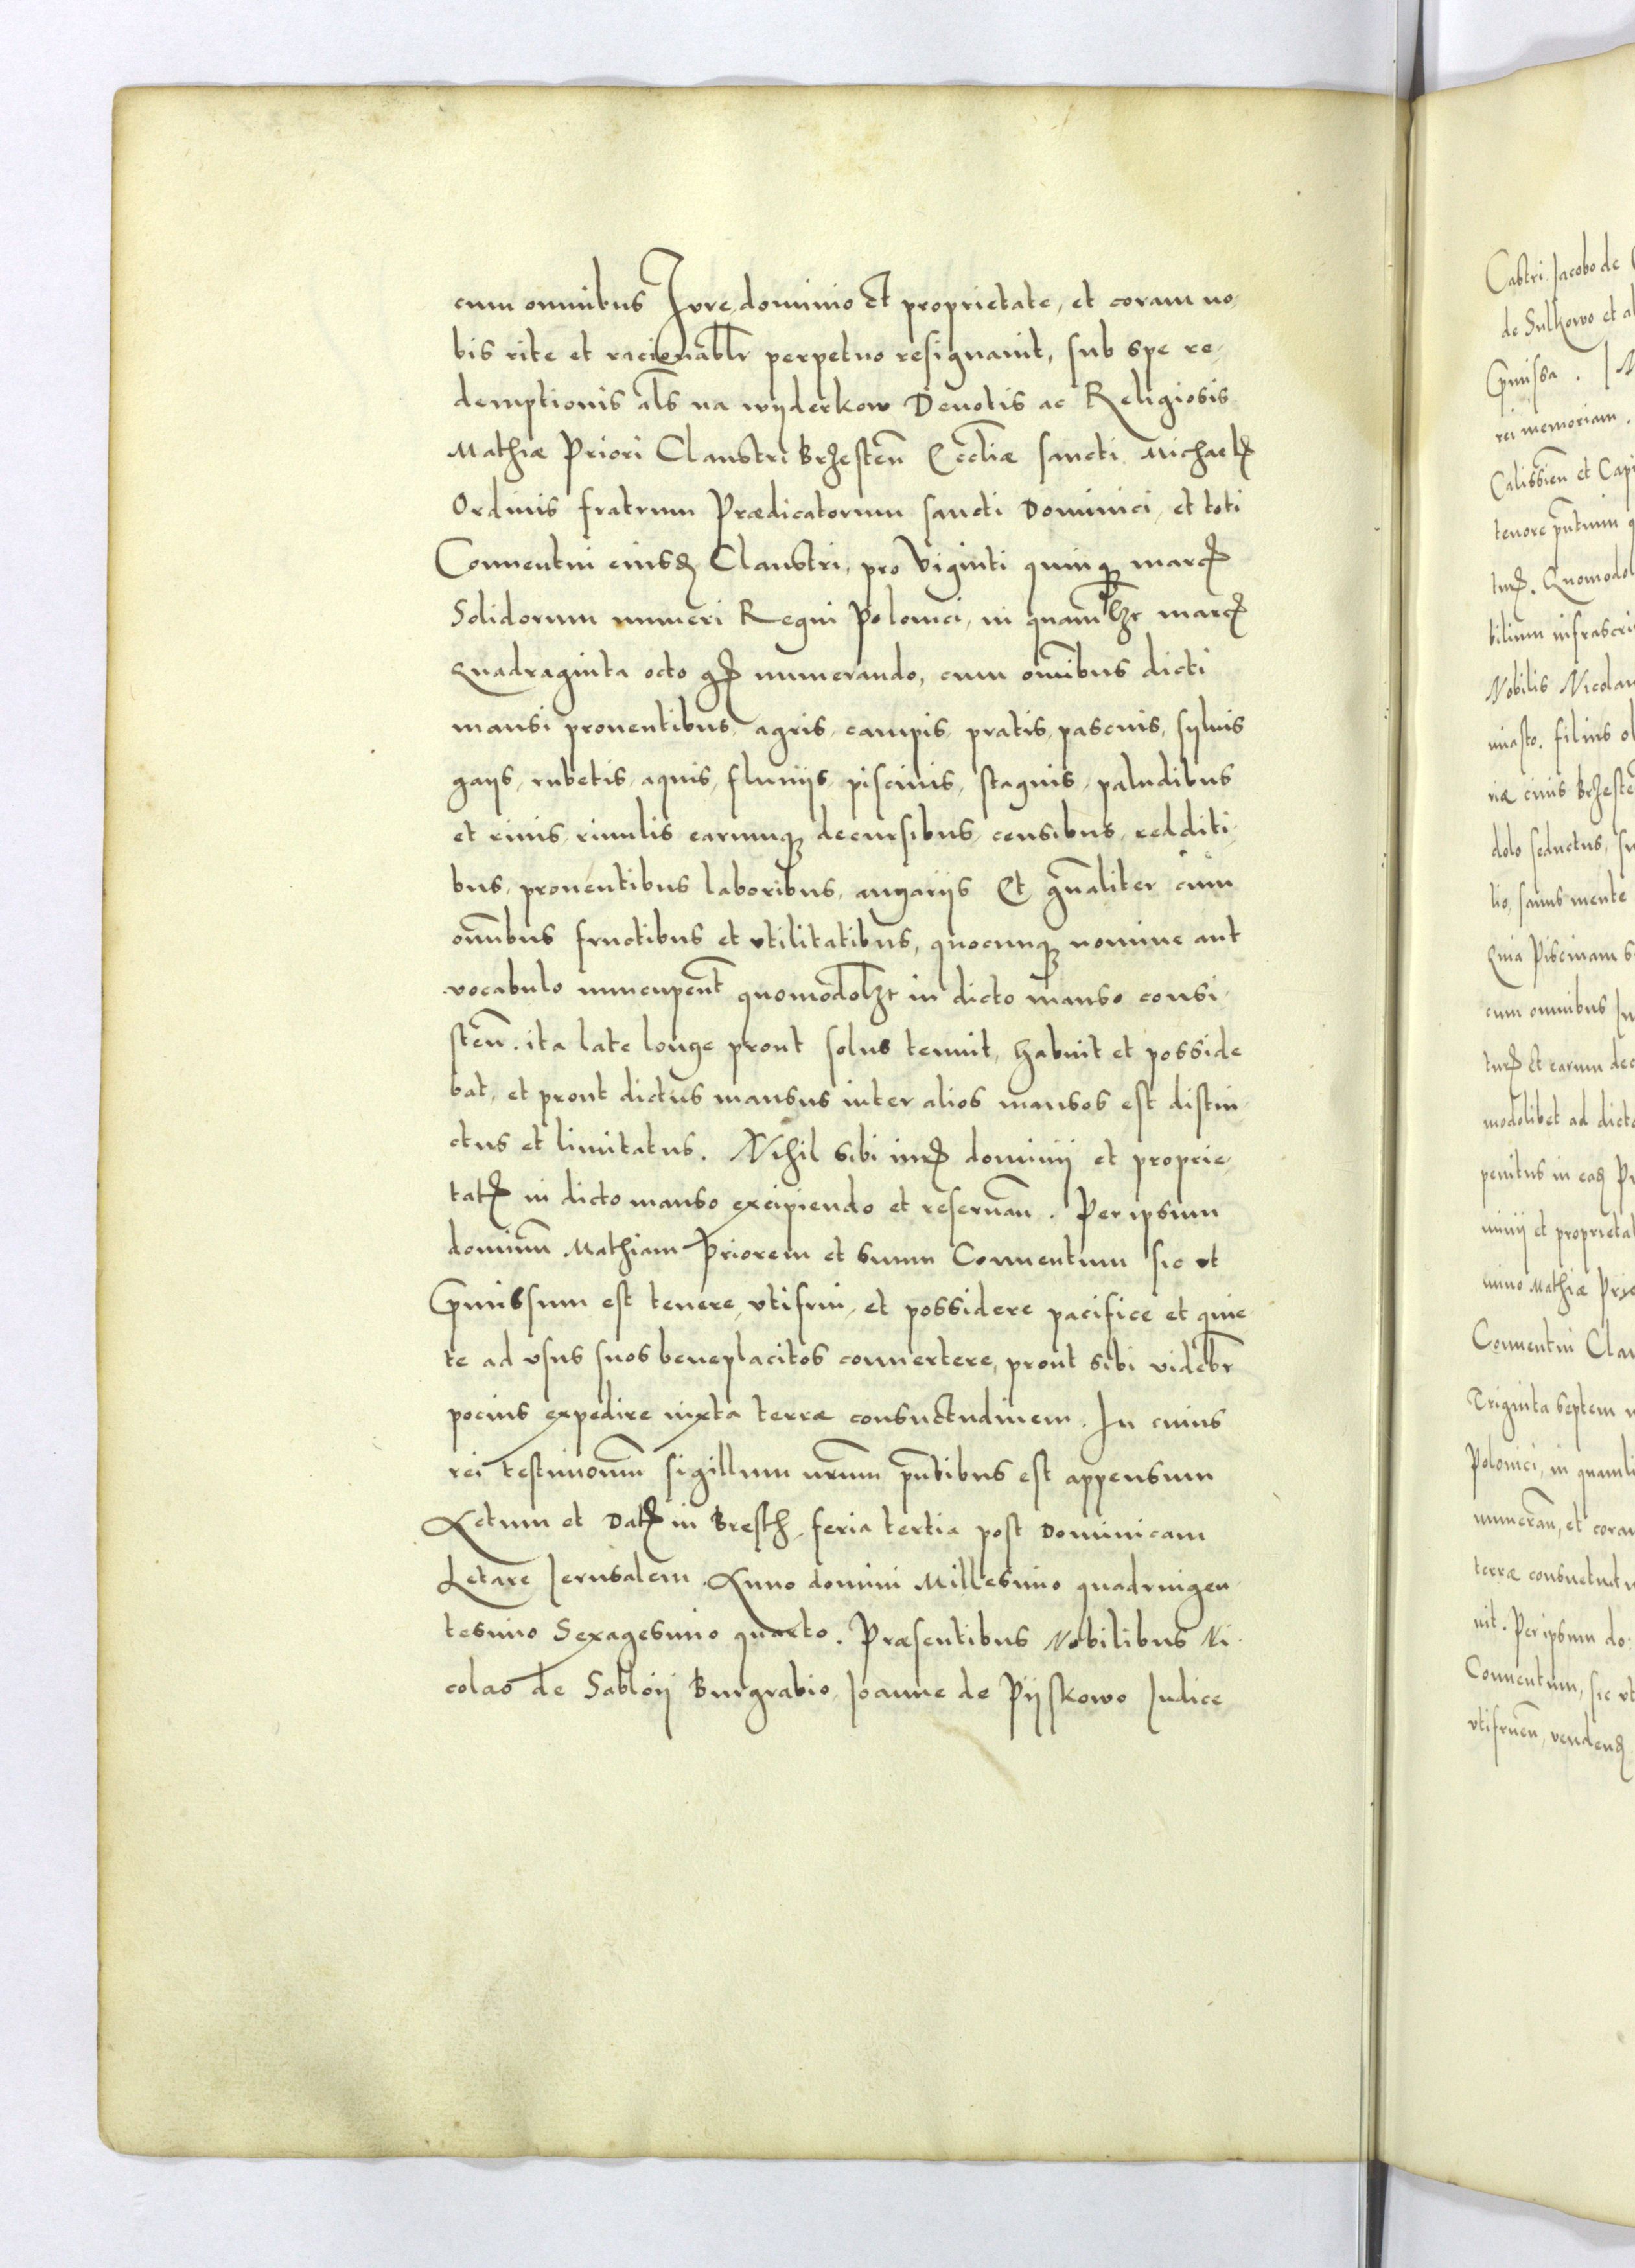 cum omnibus Jvre dominio et proprietate, et coram no-
bis rite et racionablr perpetuo resignauit, sub spe re-
demptionis als na wyderkow Deuotis ac Religiosis
Mathiæ Priori Claustri Brzesten Eccliæ sancti Michaelꝭ
Ordinis fratrum Prædicatorum sancti Dominici, et toti
Conuentui eiusꝫ Claustri, pro Viginti quinqꝫ marcꝭ
Solidorum numeri Regni Polonici, in quamlꝫt marcꝭ
Quadraginta octo gꝭ numerando, cum omibus dicti
mansi prouentibus, agris, campis, pratis, pascuis, syluis
gays, rubetis, aquis, fluuijs, piscinis, stagnis, paludibus
et riuis, riuulis earumqꝫ decursibus, censibus, redditi-
bus, prouentibus laboribus, angarijs Et gnaliter cum
omibus fructibus et vtilitatibus, quocunqꝫ nomine aut
vocabulo nuncupent quomodolꝫt in dicto manso consi-
sten. ita late longe prout solus tenuit, habuit et posside
bat, et prout dictus mansus inter alios mansos est distin-
ctus et limitatus. Nihil sibi iurꝭ dominij et proprie-
tatꝭ in dicto manso excipiendo et reseruan. Per ipsum
dominum Mathiam Priorem et suum Conuentum sic vt
Pmissum est tenere, vtifrui, et possidere pacifice et quie-
te ad vsus suos beneplacitos conuertere, prout sibi videbr
pocius expedire iuxta terræ consuetudinem. In cuius
rei testimonium sigillum nrum pntibus est appensum
Actum et Datꝭ in Bresth, feria tertia post Dominicam
Letare Jerusalem. Anno domini Millesimo quadringen-
tesimo Sexagesimo quarto. Præsentibus Nobilibus Ni-
colao de Sabloij Burgrabio, Joanne de Pijskowo Judice
Castri Jacobo de
de Sulkowo et al
Pmissa.
rei memoriam.
Calissien et Capi
tenore pntium q
turꝭ. Quomodol
bilium infrascri
Nobilis Nicolau
miasto. filius ol
riæ ciuis Brzeste
dolo seductus, su
lio, sanus mente
Quia Piscinam s
cum omnibus Ju
turꝭ Et earum dec
modolibet ad dicta
penitus in eaꝫ Pi
minij et proprietat
mino Mathiæ Prio
Conuentui Clau
Triginta septem
Polonici, in quamli
numeran, et cora
terræ consuetud
uit. Per ipsum do:
Conuentum, sic vt
vtifruen, vendenꝫ